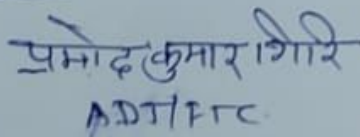 प्रमोद कुमार गिरि
ADJ/FTC